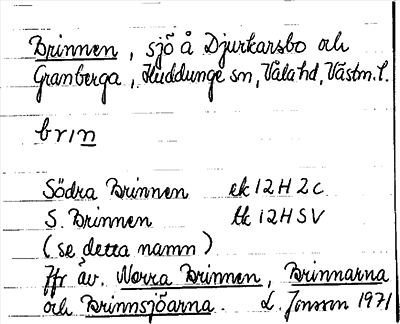 Brinnen, sjö å Djurkarsbo och
Granberga, Huddunge sn, Våla hd, Västm. l.
brin
Södra Brinnen ek 12H2c
S. Brinnen tk 12HSV
(se detta namn)
Jfr äv. Norra Brinnen, Brinnarna
och Brinnsjöarna. L. Jonsson 1971